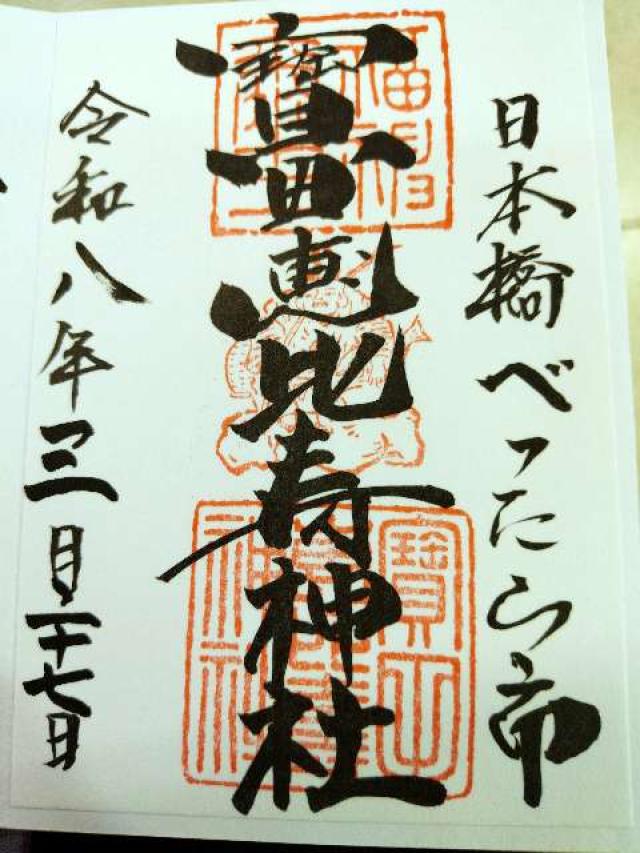 日本橋べったら市
寶田恵比寿神社
令和八年三月二十七日